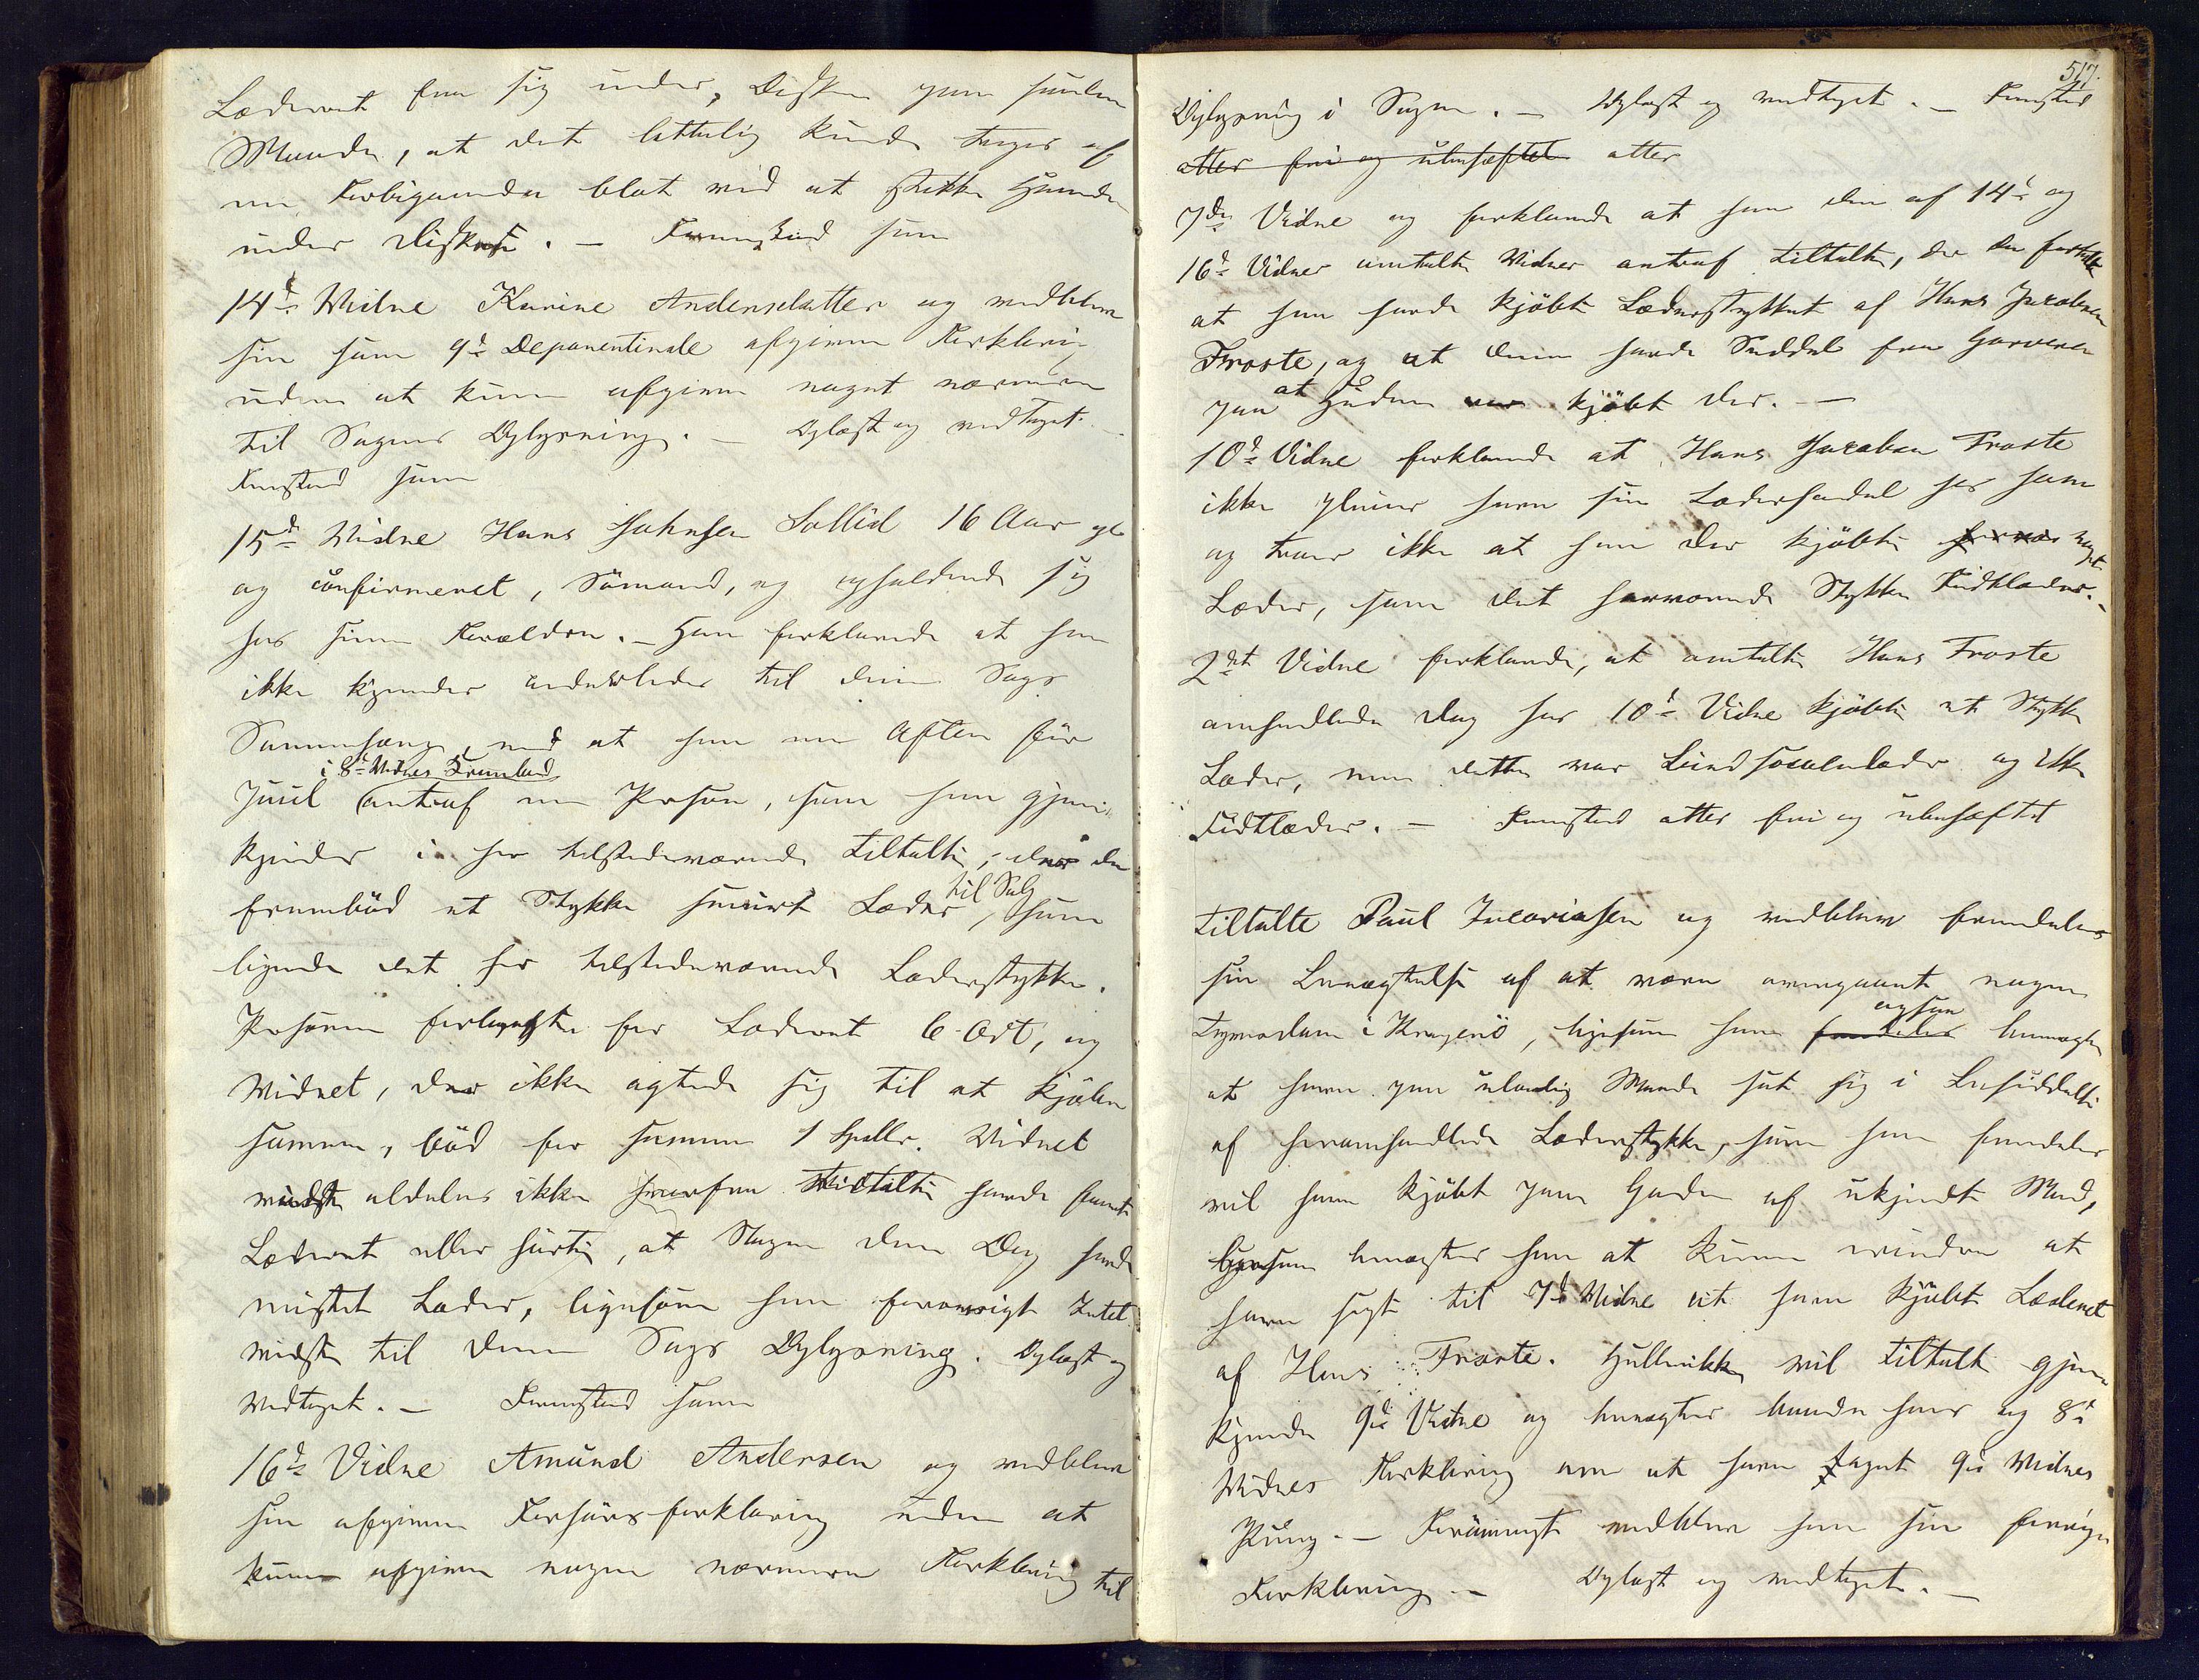 Læderet frem sig under Disken paa saadan
Maade, at det letteligen kunde tages af
en Forbigaaende blot ved at stikke Haanden
under Disken. — Fremstod som
14de Vidne Karine Andersdatter og vedblev
sin som 9de Deponentinde afgivne Forklaring
uden at kunne afgive noget nærmere
til Sagens Oplysning. — Oplæst og vedtaget. —
Fremstod som
15de Vidne Hans Johnsen Sollid 16 Aar gl
og confirmeret, Sömand, og opholdende sig
hos sine Forældre. — Han forklarede at han
ikke kjender anderledes til denne Sags
Sammenhæng, end at han en Aften för
i 8de Vidnes Krambod
Juul antraf en Person, som han gjen-
kjender i her tilstedeværende Tiltalte, der da
til Salg
frembød et Stykke smurt Læder, som
lignede det her tilstedeværende Læderstykke.
Personen forlangte for Læderet 6 Ort, og
Vidnet, der ikke agtede sig til at kjöbe
samme, böd for samme 1 Spdlr. Vidnet
vidste aldeles ikke hvorfra Tiltalte havde faaet
Læderet eller hørte, at Nogen denne Dag havde
mistet Læder, ligesom han forøvrigt Intet
vidste til denne Sags Oplysning. Oplæst og
vedtaget. — Fremstod som
16de Vidne Amund Andersen og vedblev
sin afgivne Forhörsforklaring uden at
kunne afgive nogen nærmere Forklaring til
517.
Oplysning i Sagen. — Oplæst og vedtaget. — Fremstod
atter fri og ubehæftet atter
7de Vidne og forklarede at han den af 14de og
16de Vidner omtalte Vidner antraf Tiltalte, der da fortalte
at han havde kjöbt Læderstykket af Hans Jacobsen
Froste, og at denne havde Seddel fra Garveren
at
paa Huden var kjöbt der. —
10de Vidne forklarede at Hans Jacobsen Froste
ikke pleier have sin Læderhandel hos ham
og troer ikke at han der kjöbte noget
Læder, som det herværende Stykke Fedtlæder. —
2det Vidne forklarede, at omtalte Hans Froste
omhandlede Dag hos 10de Vidne kjöbte et Stykke
Læder, men dette var Bindsaalelæder og ikke
Fedtlæder. — Fremstod atter fri og ubehæftet
Tiltalte Paul Zacariasen og vedblev fremdeles
sin Benægtelse af at være overgaaet nogen
Tyvsdom i Kragerö, ligesom han
ogsaa
fremdeles benægter
at have paa ulovlig Maade sat sig i Besiddelse
af heromhandlede Læderstykke, som han fremdeles
vil have kjöbt paa Gaden af ukjendt Mand,
ligesom benægter han at kunne erindre at
have sagt til 7de Vidne at have kjöbt Læderet
af Hans Froste. Hellerikke vil Tiltalte gjen-
kjende 9de Vidne og benægter baade hans og 8de
Vidnes Forklaring om at have taget 9des Vidnes
Pung. — Forövrigt vedblev han sin forrige
Forklaring. — Oplæst og vedtaget. —